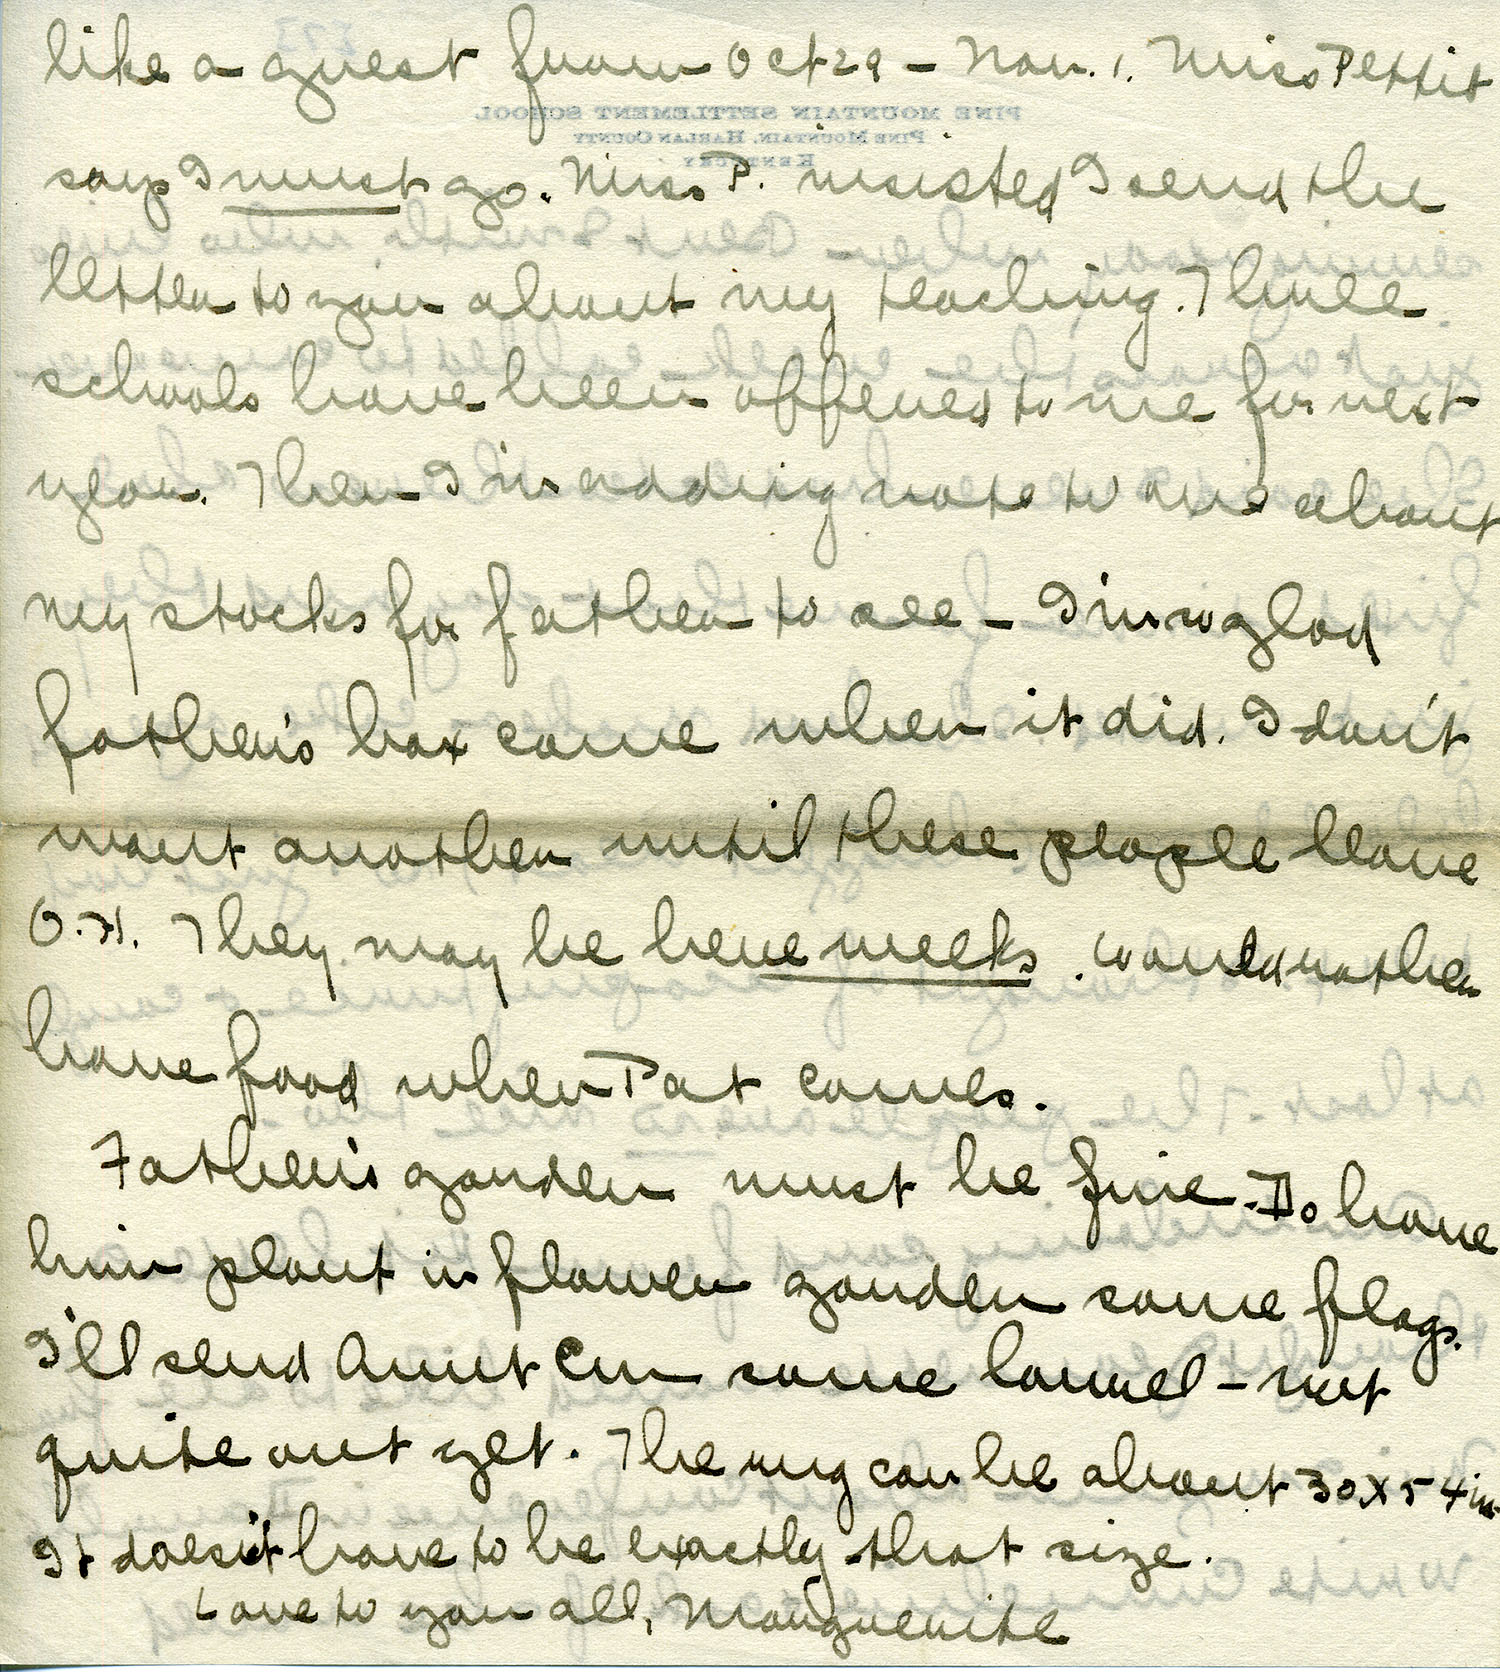 like a guest from Oct 29 - Nov. 1. Miss Pettit
PINE MOUNTAIN SETTLEMENT SCHOOL
PINE MOUNTAIN, HARLAN COUNTY
KENTUCKY
says I must go. Miss P. insisted I send the
letter to you about my teaching. Three
schools have been offered to me for next
year. Then I'm adding note to one about
my stocks for father to see - I'm so glad
father's box came when it did. I don't
want another until these people leave
O.H. They may be here weeks. Would rather
have food when Pat comes.
Father's garden must be fine. Do have
him plant in flower garden some flags.
I'll send Aunt Em some laurel - not
quite out yet. The rug can be about 30 x 54 in.
It doesn't have to be exactly that size.
Love to you all, Marguerite